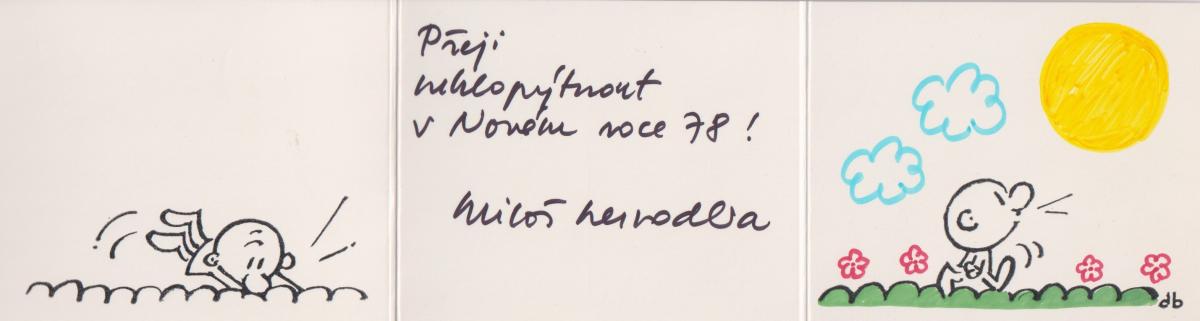 Přeji
neklopýtnout
v Novém roce 78!
Miloš Nesvadba
db